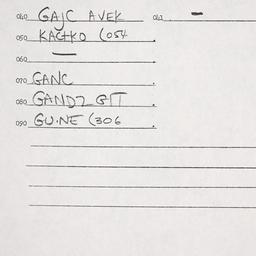 040 GAJC AVEK 042 -
050 KACHKO (054
060 —
070 GANC
080 GANDZ GIT
090 GUINE (306